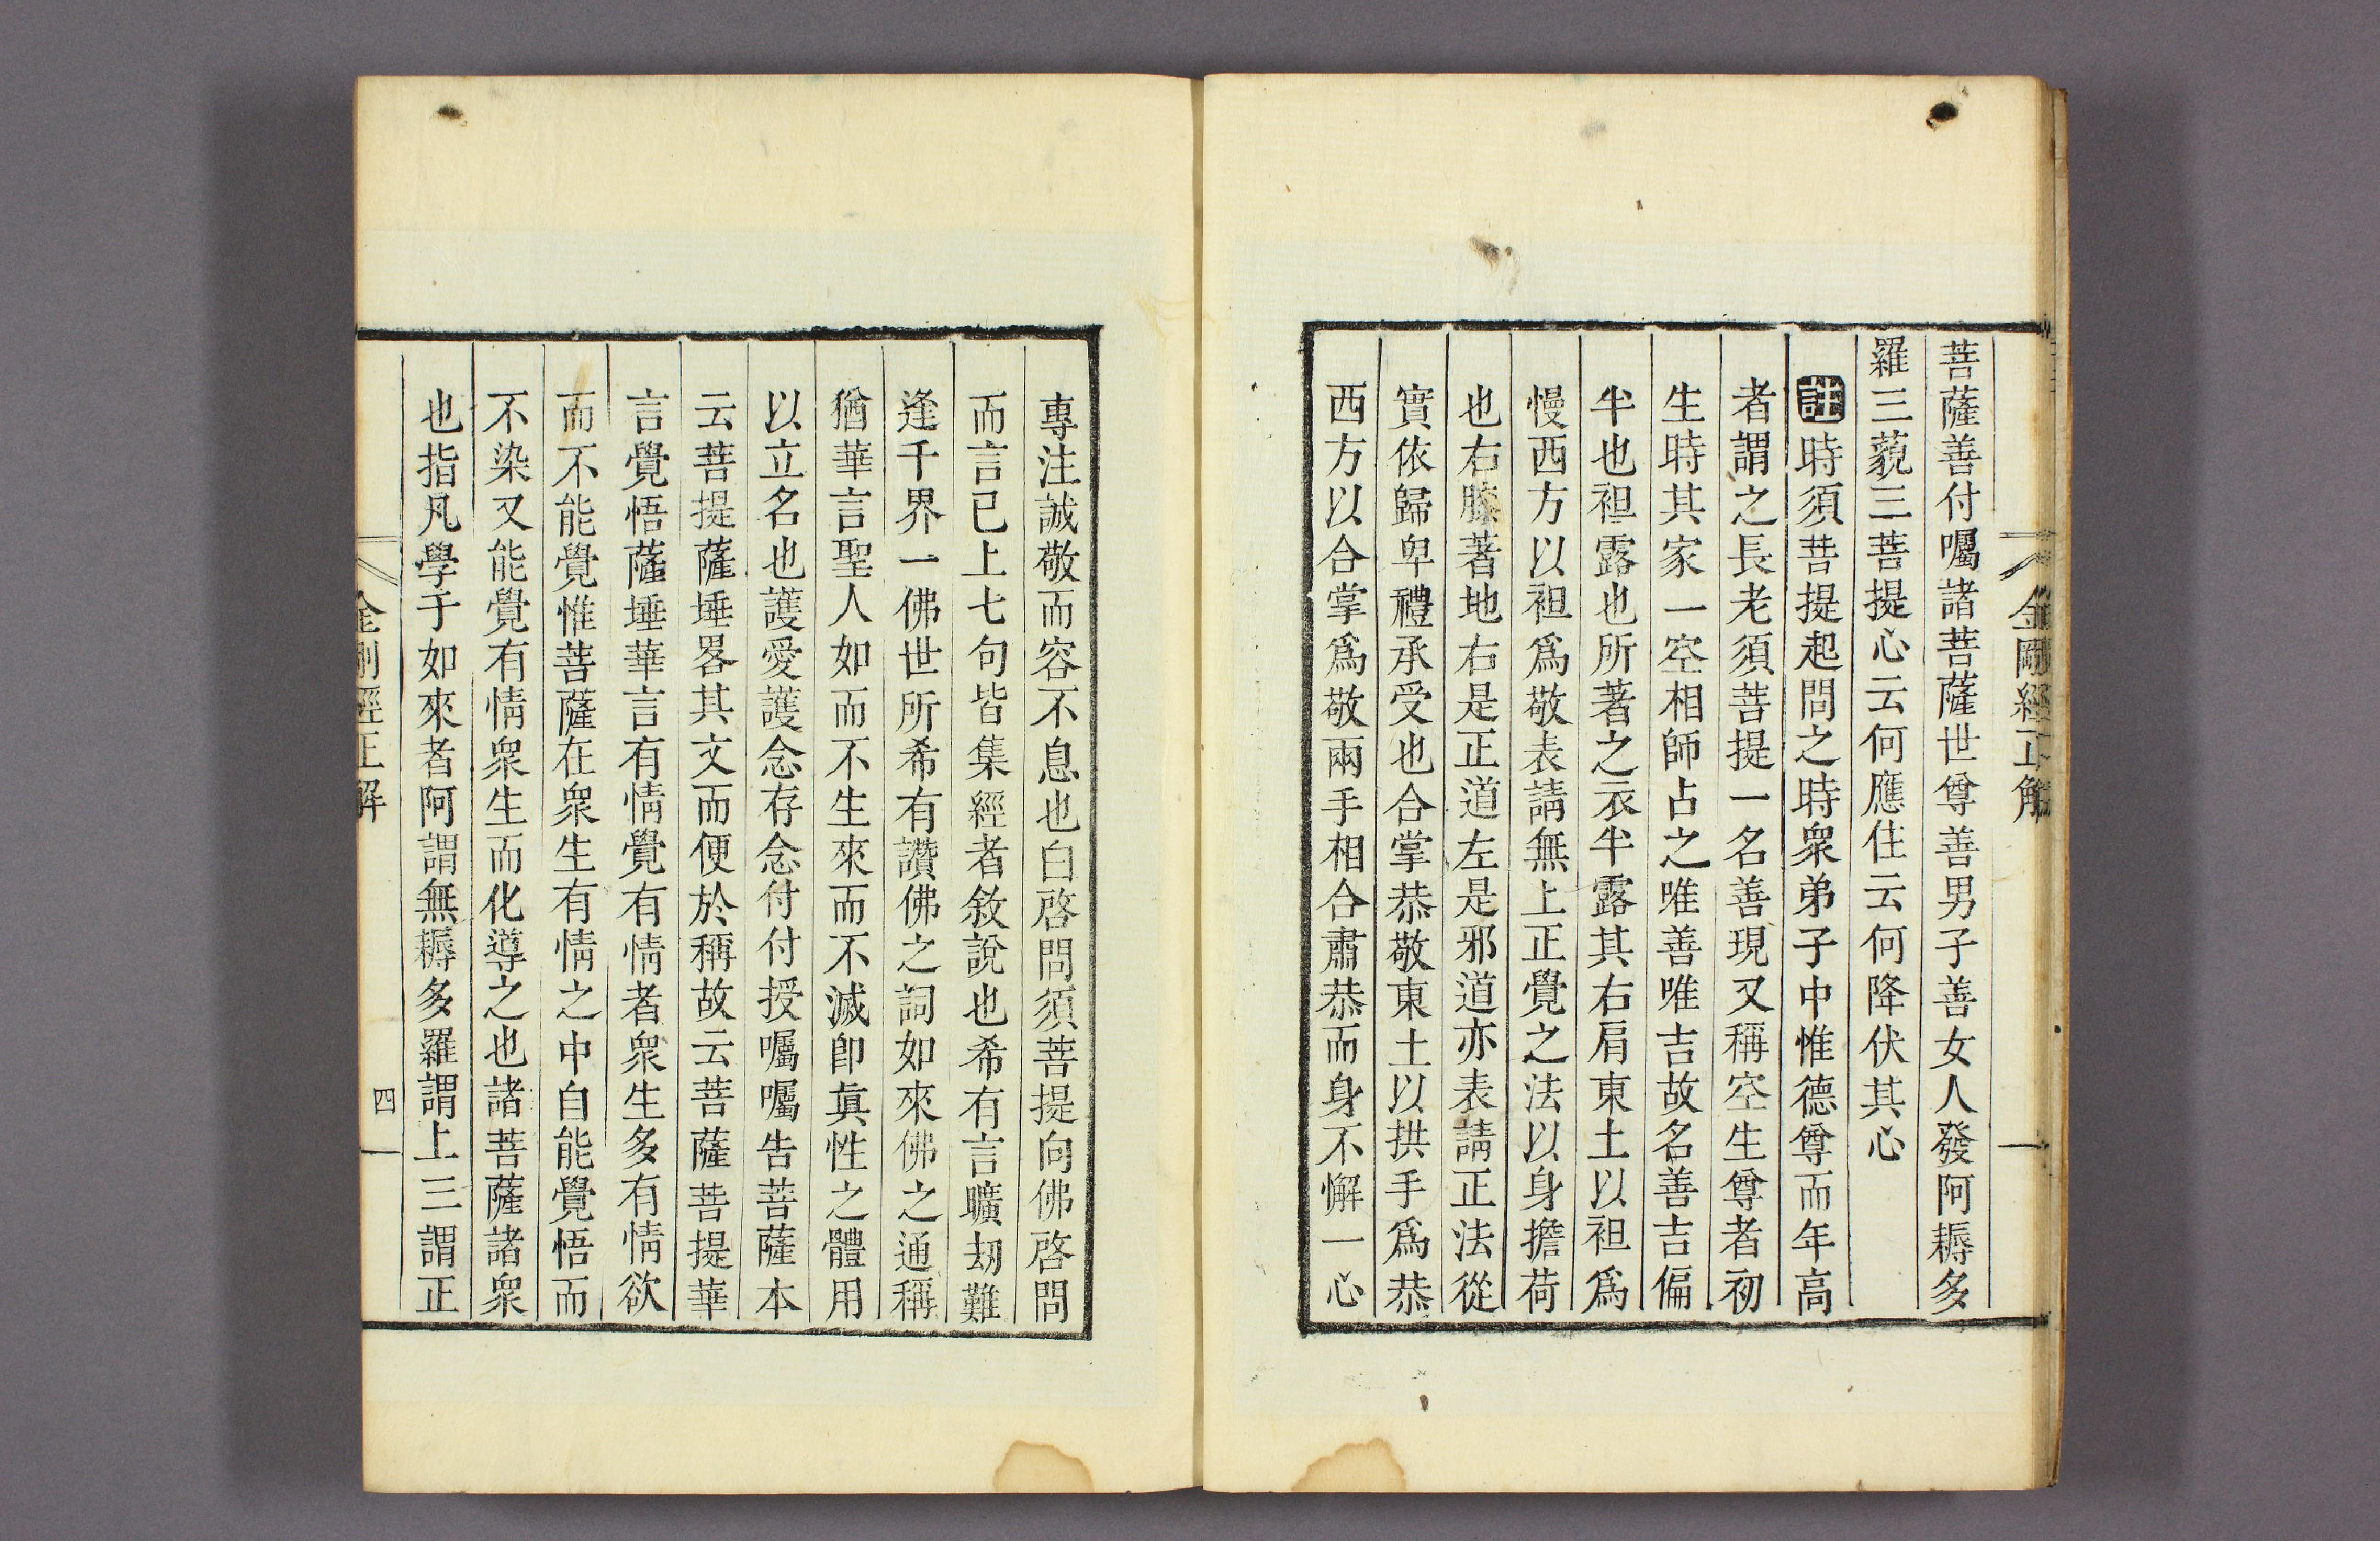 金剛經正解
菩薩善付囑諸菩薩世尊善男子善女人發阿耨多
羅三藐三菩提心云何應住云何降伏其心
註時須菩提起問之時衆弟子中惟德尊而年高
者謂之長老須菩提一名善現又稱空生尊者初
生時其家一空相師占之唯善唯吉故名善吉偏
半也袒露也所著之衣半露其右肩東土以袒爲
慢西方以袒爲敬表請無上正覺之法以身擔荷
也右膝著地右是正道左是邪道亦表請正法從
實依歸卑禮承受也合掌恭敬東土以拱手爲恭
西方以合掌爲敬兩手相合肅恭而身不懈一心
專注誠敬而容不息也白啓問須菩提向佛啓問
而言已上七句皆集經者敘說也希有言曠刼難
逢千界一佛世所希有讚佛之詞如來佛之通稱
猶華言聖人如而不生來而不滅卽眞性之體用
以立名也護愛護念存念付付授囑囑告菩薩本
云菩提薩埵畧其文而便於稱故云菩薩菩提華
言覺悟薩埵華言有情覺有情者衆生多有情欲
而不能覺惟菩薩在衆生有情之中自能覺悟而
不染又能覺有情衆生而化導之也諸菩薩諸衆
也指凡學于如來者阿謂無耨多羅謂上三謂正
金剛經正解
四